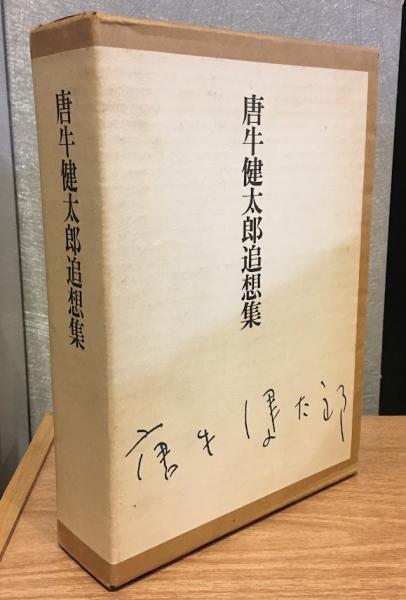 唐牛健太郎追想集
唐牛健太郎追想集
唐牛健太郎